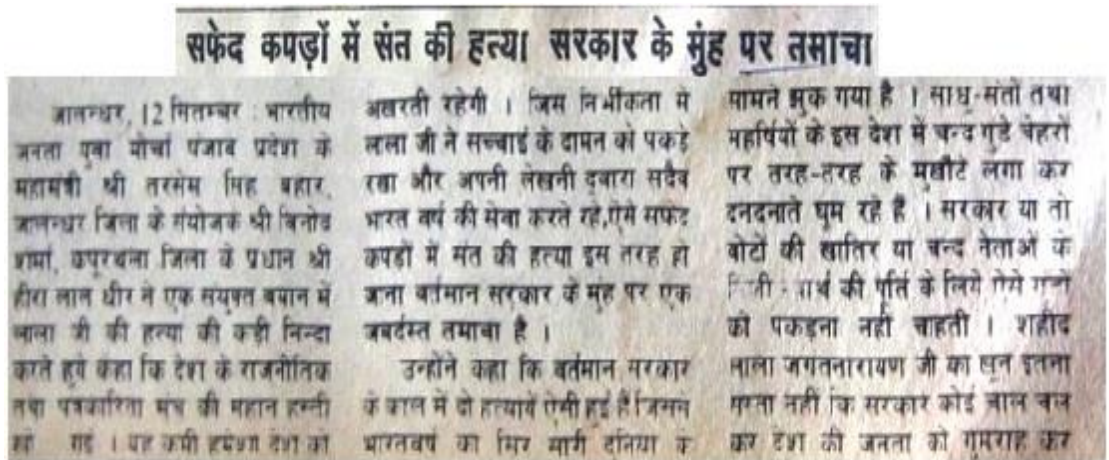 सफेद कपड़ों में संत की हत्या सरकार के मुंह पर तमाचा
जालन्धर, 12 सितम्बर : भारतीय
जनता युवा मोर्चा पंजाब प्रदेश के
महामंत्री श्री तरसेम सिंह बहार,
जालन्धर जिला के संयोजक श्री विनोद
शर्मा, कपूरथला जिला के प्रधान श्री
हीरा लाल धीर ने एक संयुक्त बयान में
लाला जी की हत्या की कड़ी निन्दा
करते हुये कहा कि देश के राजनीतिक
तथा पत्रकारिता मंच की महान हस्ती
गई । यह कमी हमेशा देश को
अखरती रहेगी । जिस निर्भीकता से
लाला जी ने सच्चाई के दामन को पकड़े
रखा और अपनी लेखनी द्वारा सदैव
भारत वर्ष की सेवा करते रहे,ऐसे सफेद
कपड़ों में संत की हत्या इस तरह हो
जाना वर्तमान सरकार के मुंह पर एक
जबर्दस्त तमाचा है ।
उन्होंने कहा कि वर्तमान सरकार
के काल में दो हत्यायें ऐसी हुई हैं जिनसे
भारतवर्ष का सिर सारी दुनिया के
सामने झुक गया है । साधु-संतों तथा
महर्षियों के इस देश में चन्द गुंडे चेहरों
पर तरह-तरह के मुखौटे लगा कर
दनदनाते घूम रहे हैं । सरकार या तो
वोटों की खातिर या चन्द नेताओं के
की पूर्ति के लिये ऐसे
को पकड़ना नहीं चाहती । शहीद
लाला जगतनारायण जी का खून इतना
सस्ता नहीं कि सरकार कोई चाल चल
कर देश की जनता को गुमराह कर